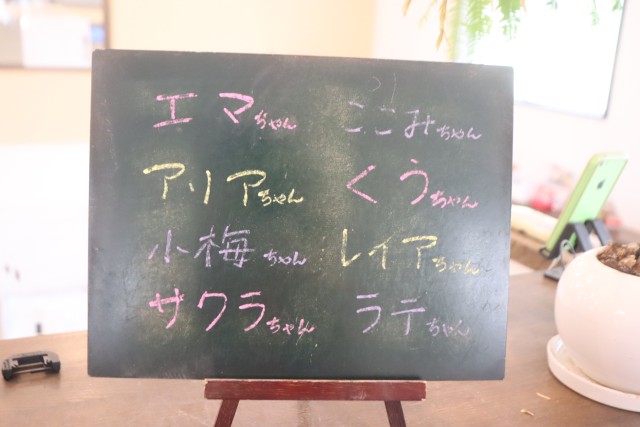 エマちゃん
ここみちゃん
アリアちゃん
くうちゃん
小梅ちゃん
レイアちゃん
サクラちゃん
ラテちゃん